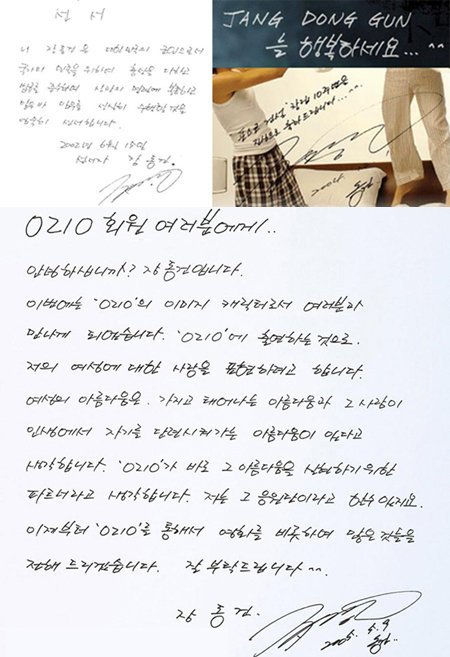 선 서
나 장동건은 대한민국의 공인으로서
국가와 민족을 위하여 충성을 다하고
법규를 준수하며 상사의 명령에 복종하고
맡은바 임무를 성실히 수행할것을
엄숙히 선서합니다.
2002년 6월 15일
선서자 장 동건
JANG DONG GUN
늘 행복하세요...^^
창간 10주년을
진심으로 축하드립니다...^^
2004.
OZIO 회원 여러분에게..
안녕하십니까? 장동건입니다.
이번에는 'OZIO'의 이미지 캐릭터로서 여러분과
만나게 되었습니다. 'OZIO'에 출연하는 것으로.
저의 여성에 대한 사랑을 표현하려고 합니다.
여성의 아름다움은. 가지고 태어나는 아름다움과 그 사람이
인생에서 자기를 단련시켜가는 아름다움이 있다고
생각합니다. 'OZIO'가 바로 그 아름다움을 실현하기위한
파트너라고 생각합니다. 저는 그 응원단이라고 할수 있지요.
이제부터 'OZIO'를 통해서 영화를 비롯하여 많은것들을
전해 드리겠습니다. 잘 부탁드립니다 ^^.
장 동건.
2005. 5. 9